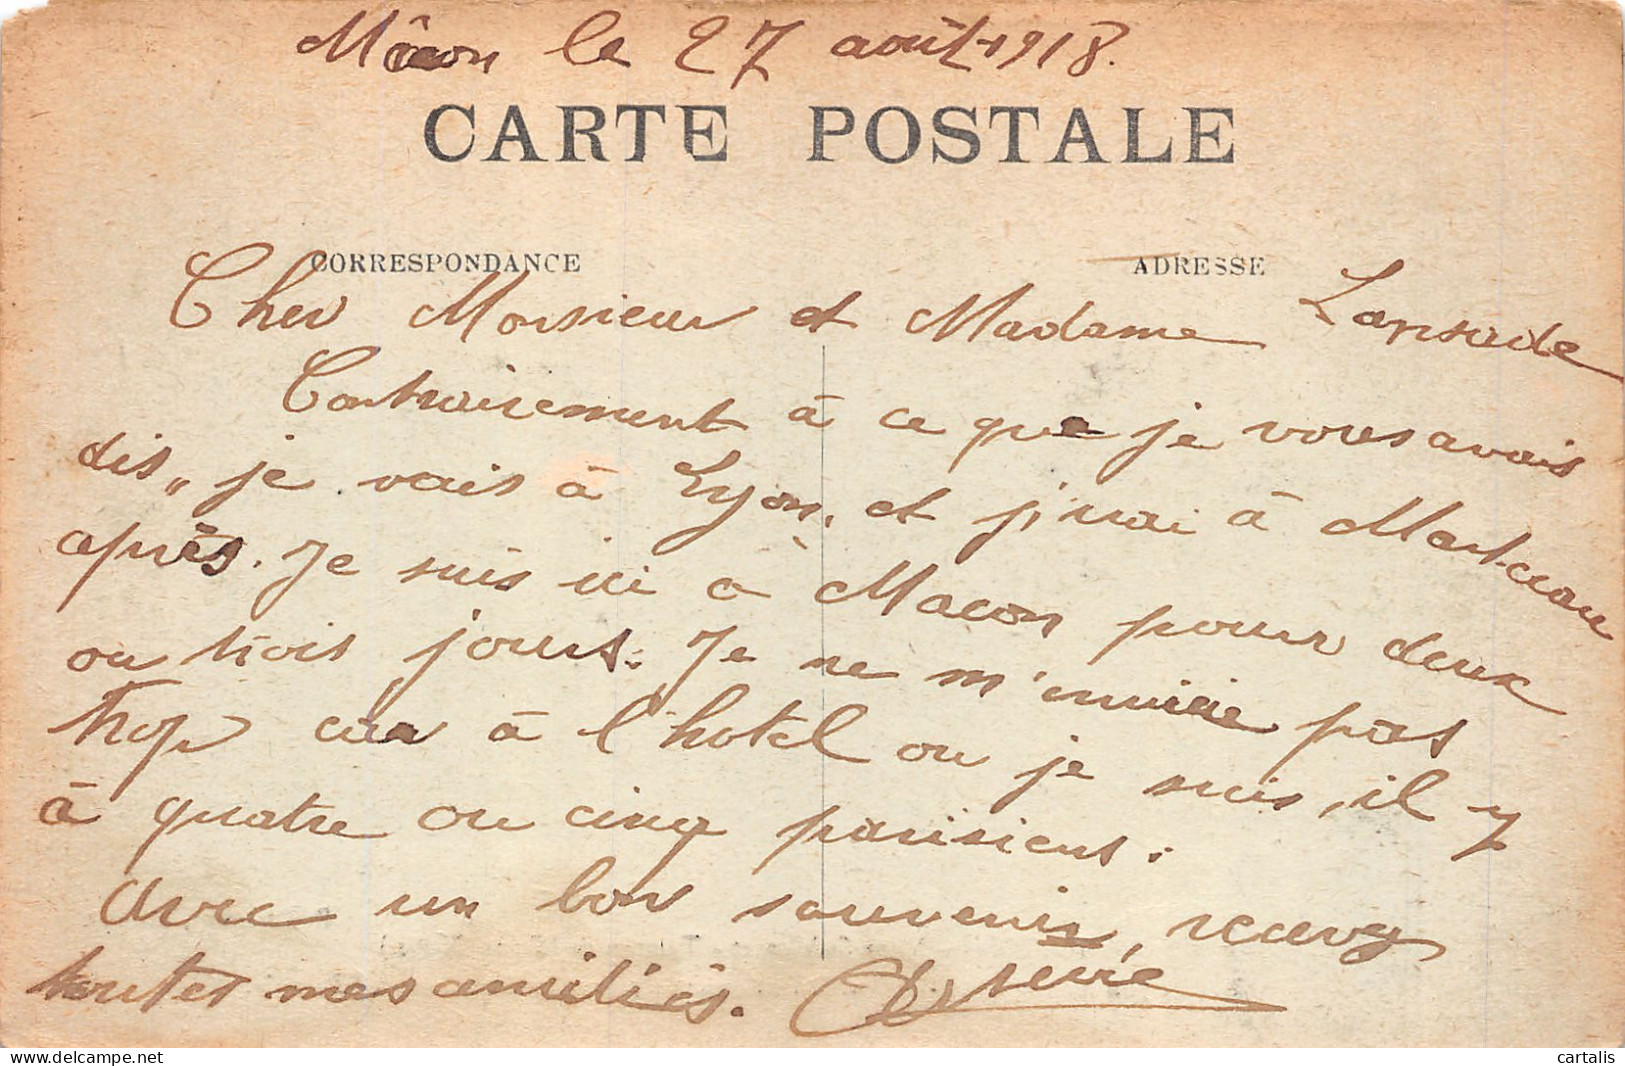 Mâcon le 27 août 1918.
CARTE POSTALE
CORRESPONDANCE
ADRESSE
Cher Monsieur et Madame
Contrairement à ce que je vous avais
dis, je vais à Lyon, et j'irai à Marteau
après. Je suis ici a Macon pour deux
ou trois jours. Je ne m'ennuie pas
trop car à l'hotel ou je suis, il y
à quatre ou cinq parisiens.
Avec un bon souvenir, recevez
toutes mes amitiés.
cartalis
delcampe.net